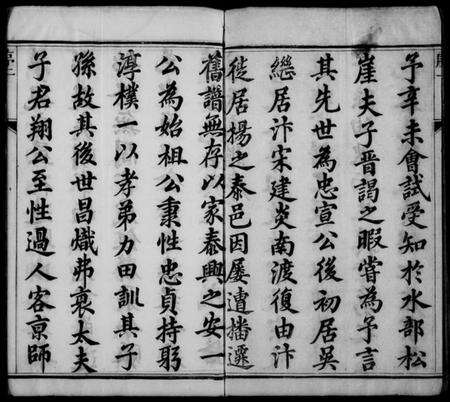 予辛未會試受知於水部松
崖夫子晉謁之暇嘗為予言
其先世為忠宣公後初居吳
繼居汴宋建炎南渡復由汴
徙居揚之泰邑因屢遭播遷
舊譜無存以家泰興之安一
公為始祖公秉性忠貞持躬
淳樸一以孝弟力田訓其子
孫故其後世昌熾弗衰太夫
子君翔公至性過人客京師